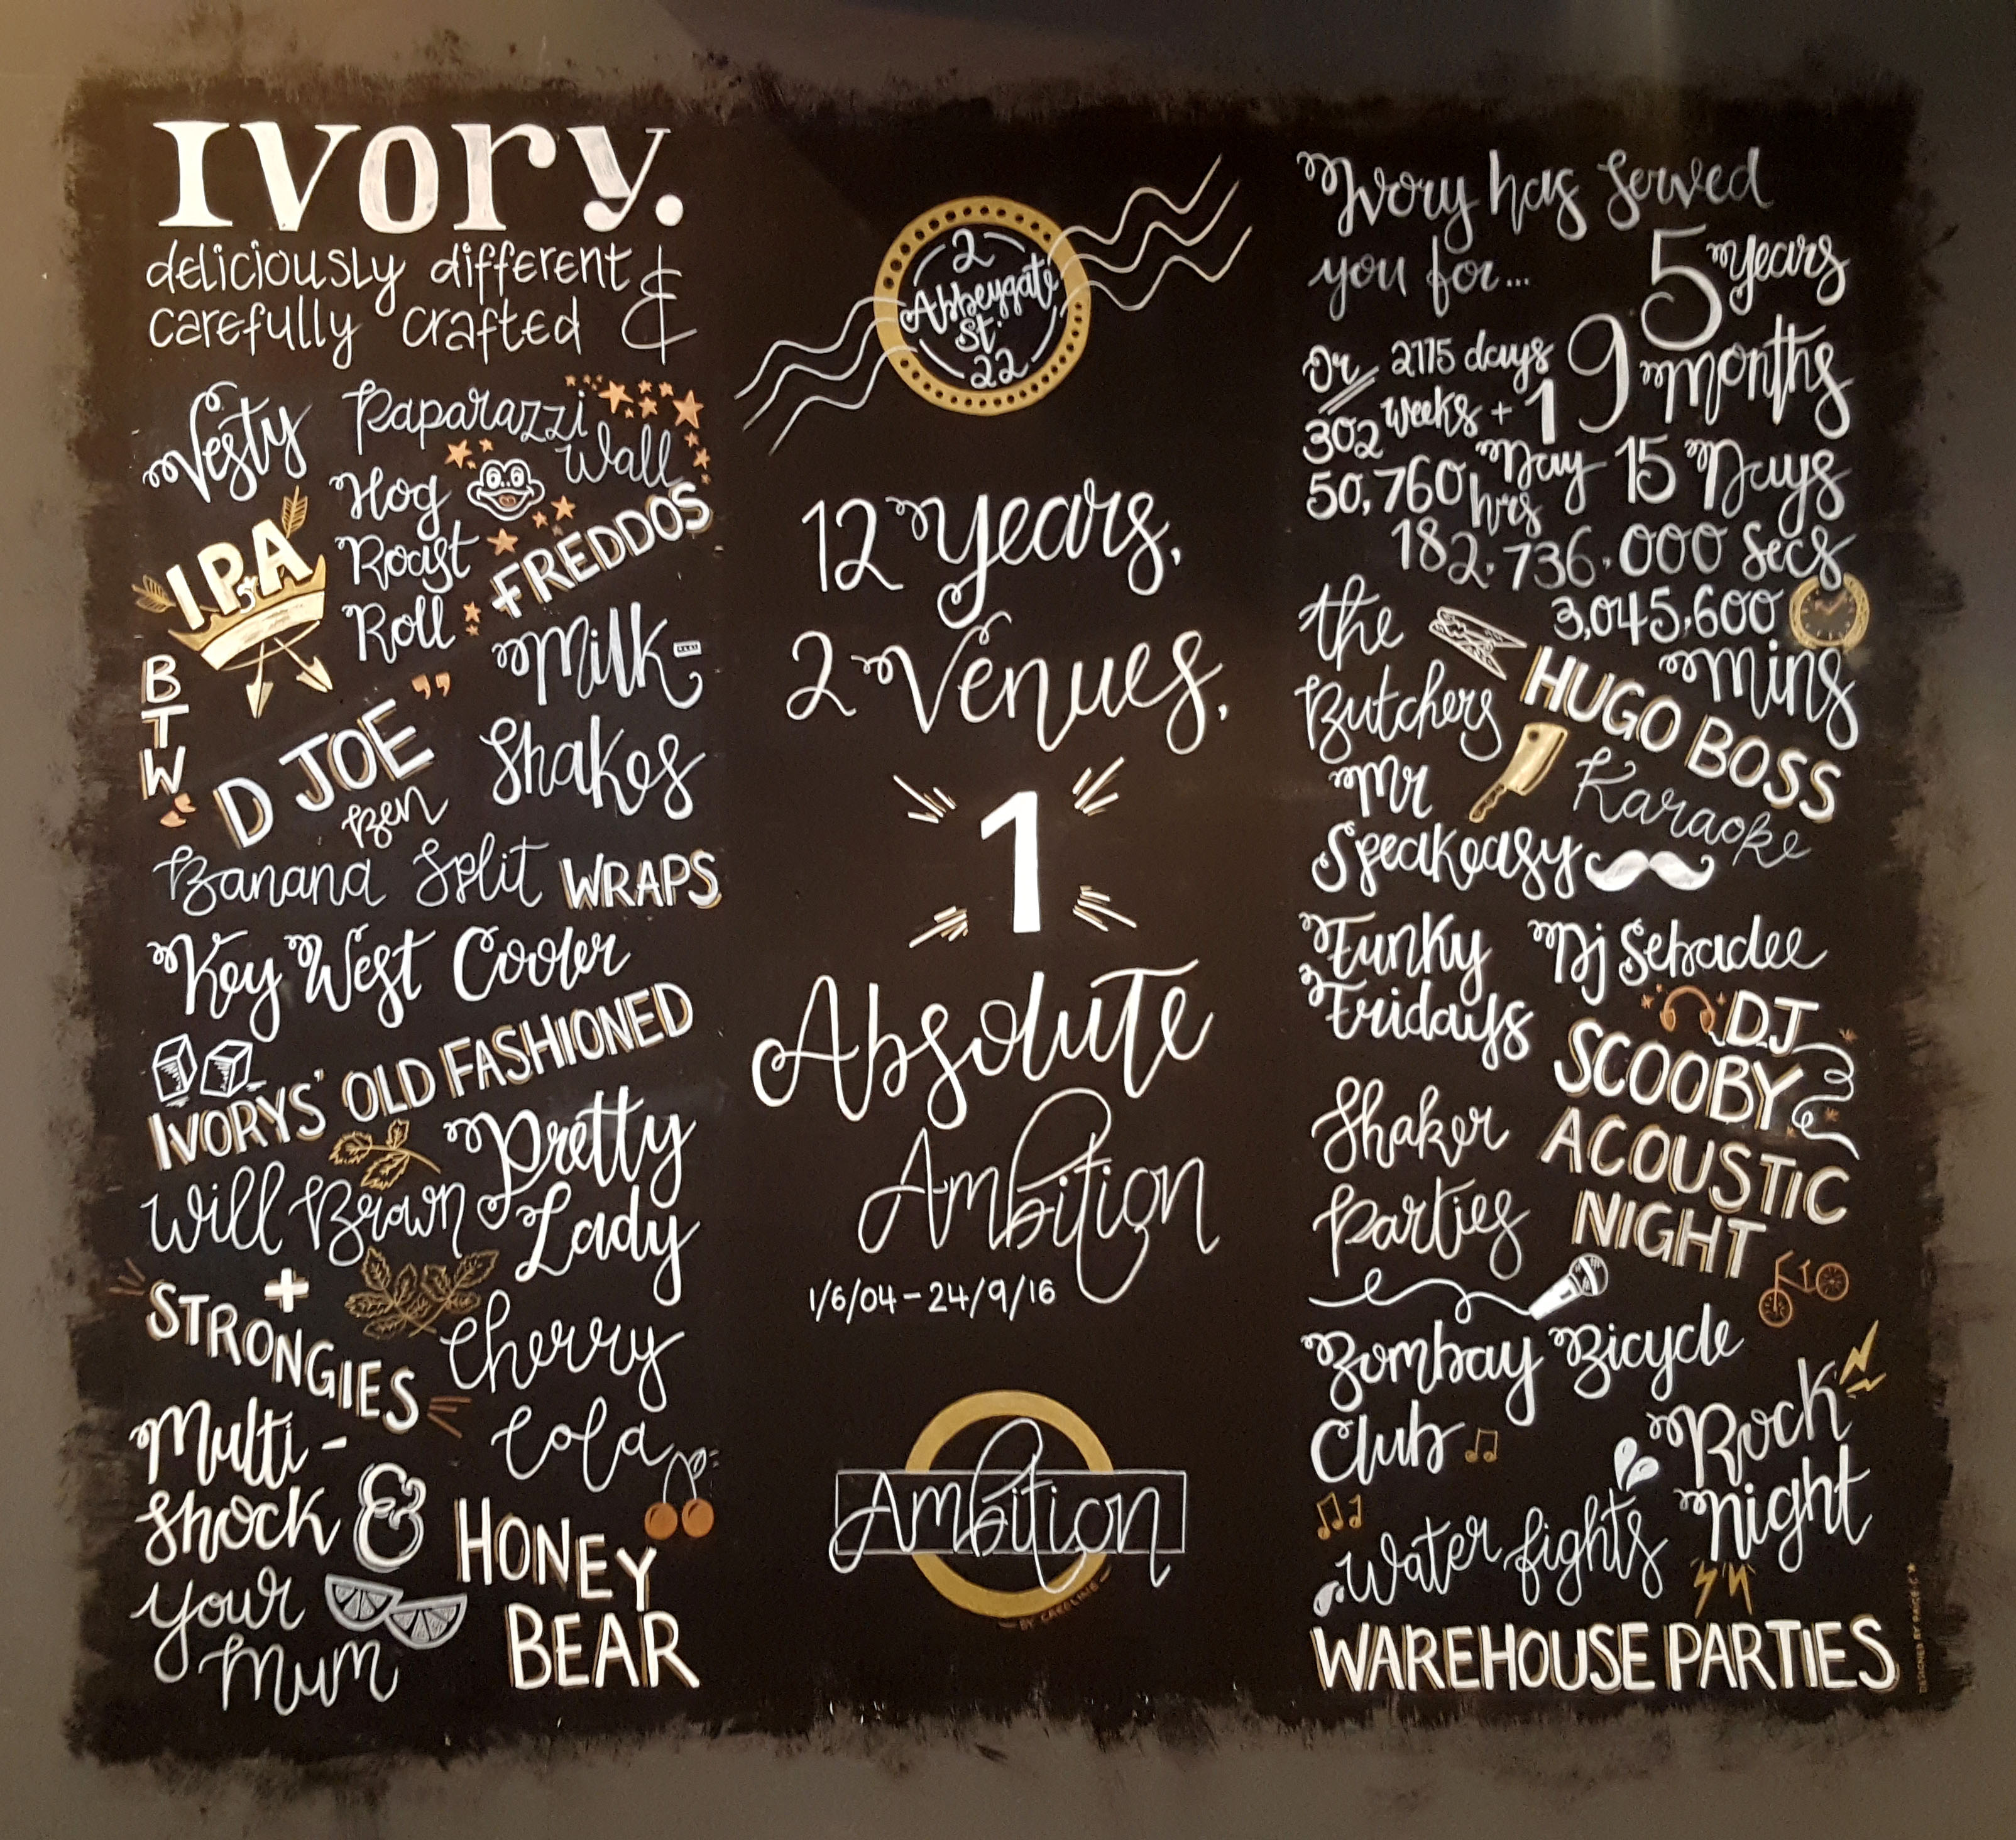 Ivory.
deliciously different &
carefully crafted
Vesty
Paparazzi
Wall
Hog
Roast
Roll
+FREDDOS
IPA
BTW
Milk-
Shakes
D JOE "
Ben
Banana Split WRAPS
Key West Cooler
IVORYS' OLD FASHIONED
Pretty
Lady
Will Brown
+
STRONGIES
Cherry
Cola
Multi-
Shock &
your
Mum
HONEY
BEAR
2
Abbeygate
St.
22
12 Years,
2 Venues,
1
Absolute
Ambition
1/6/04-24/9/16
Ambition
BY CAROLINE
Ivory has served
you for...
5 years
9 months
15 Days
Or 2115 days
302 weeks + 1
Day
50,760 hrs
182.736.000 Secs
3,045,600
mins
the
Butchers
HUGO BOSS
Karaoke
Mr
Speakeasy
Funky
Fridays
Dj Sebadee
DJ
SCOOBY
Shaker
Parties
ACOUSTIC
NIGHT
Bombay Bicycle
Club
Rock
Night
Water fights
WAREHOUSE PARTIES
DESIGNED BY